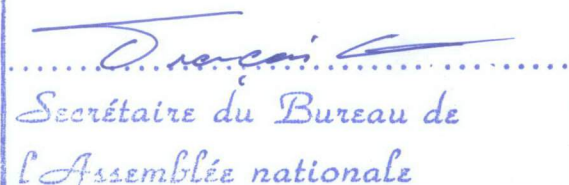 François
Secrétaire du Bureau de
l'Assemblée nationale